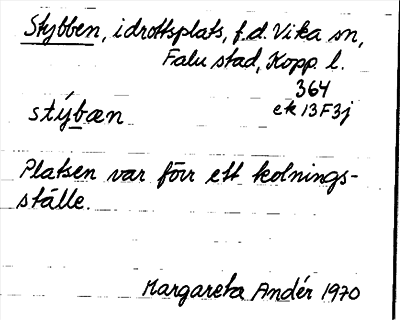 Stybben, idrottsplats, f.d. Vika sn,
Falu stad, Kopp. l.
364
ek 13F3j
stýbæn
Platsen var förr ett kolnings-
ställe.
Margareta Andér 1970